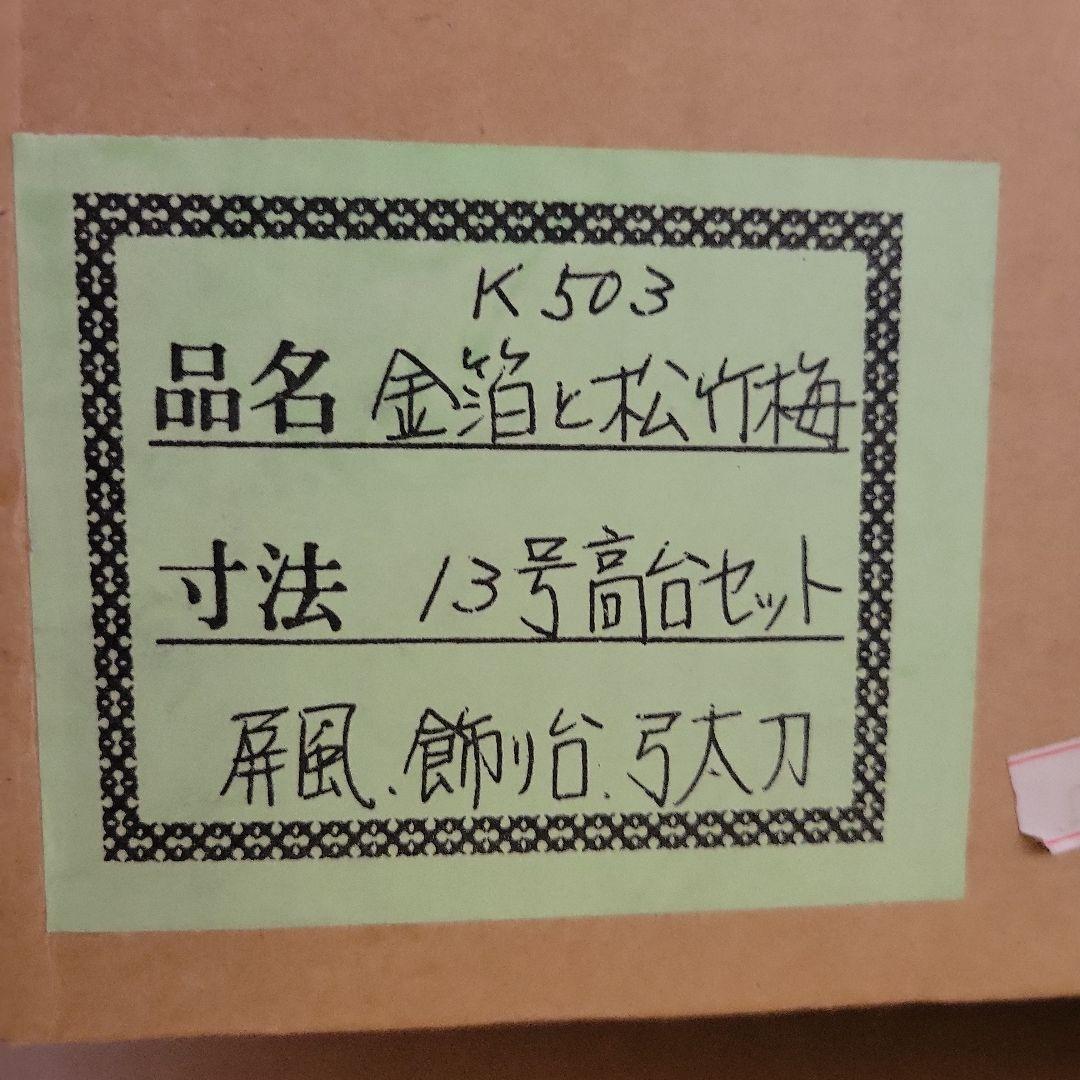 K503
品名 金箔と松竹梅
寸法 13号高台セット
屏風、飾り台、弓太刀